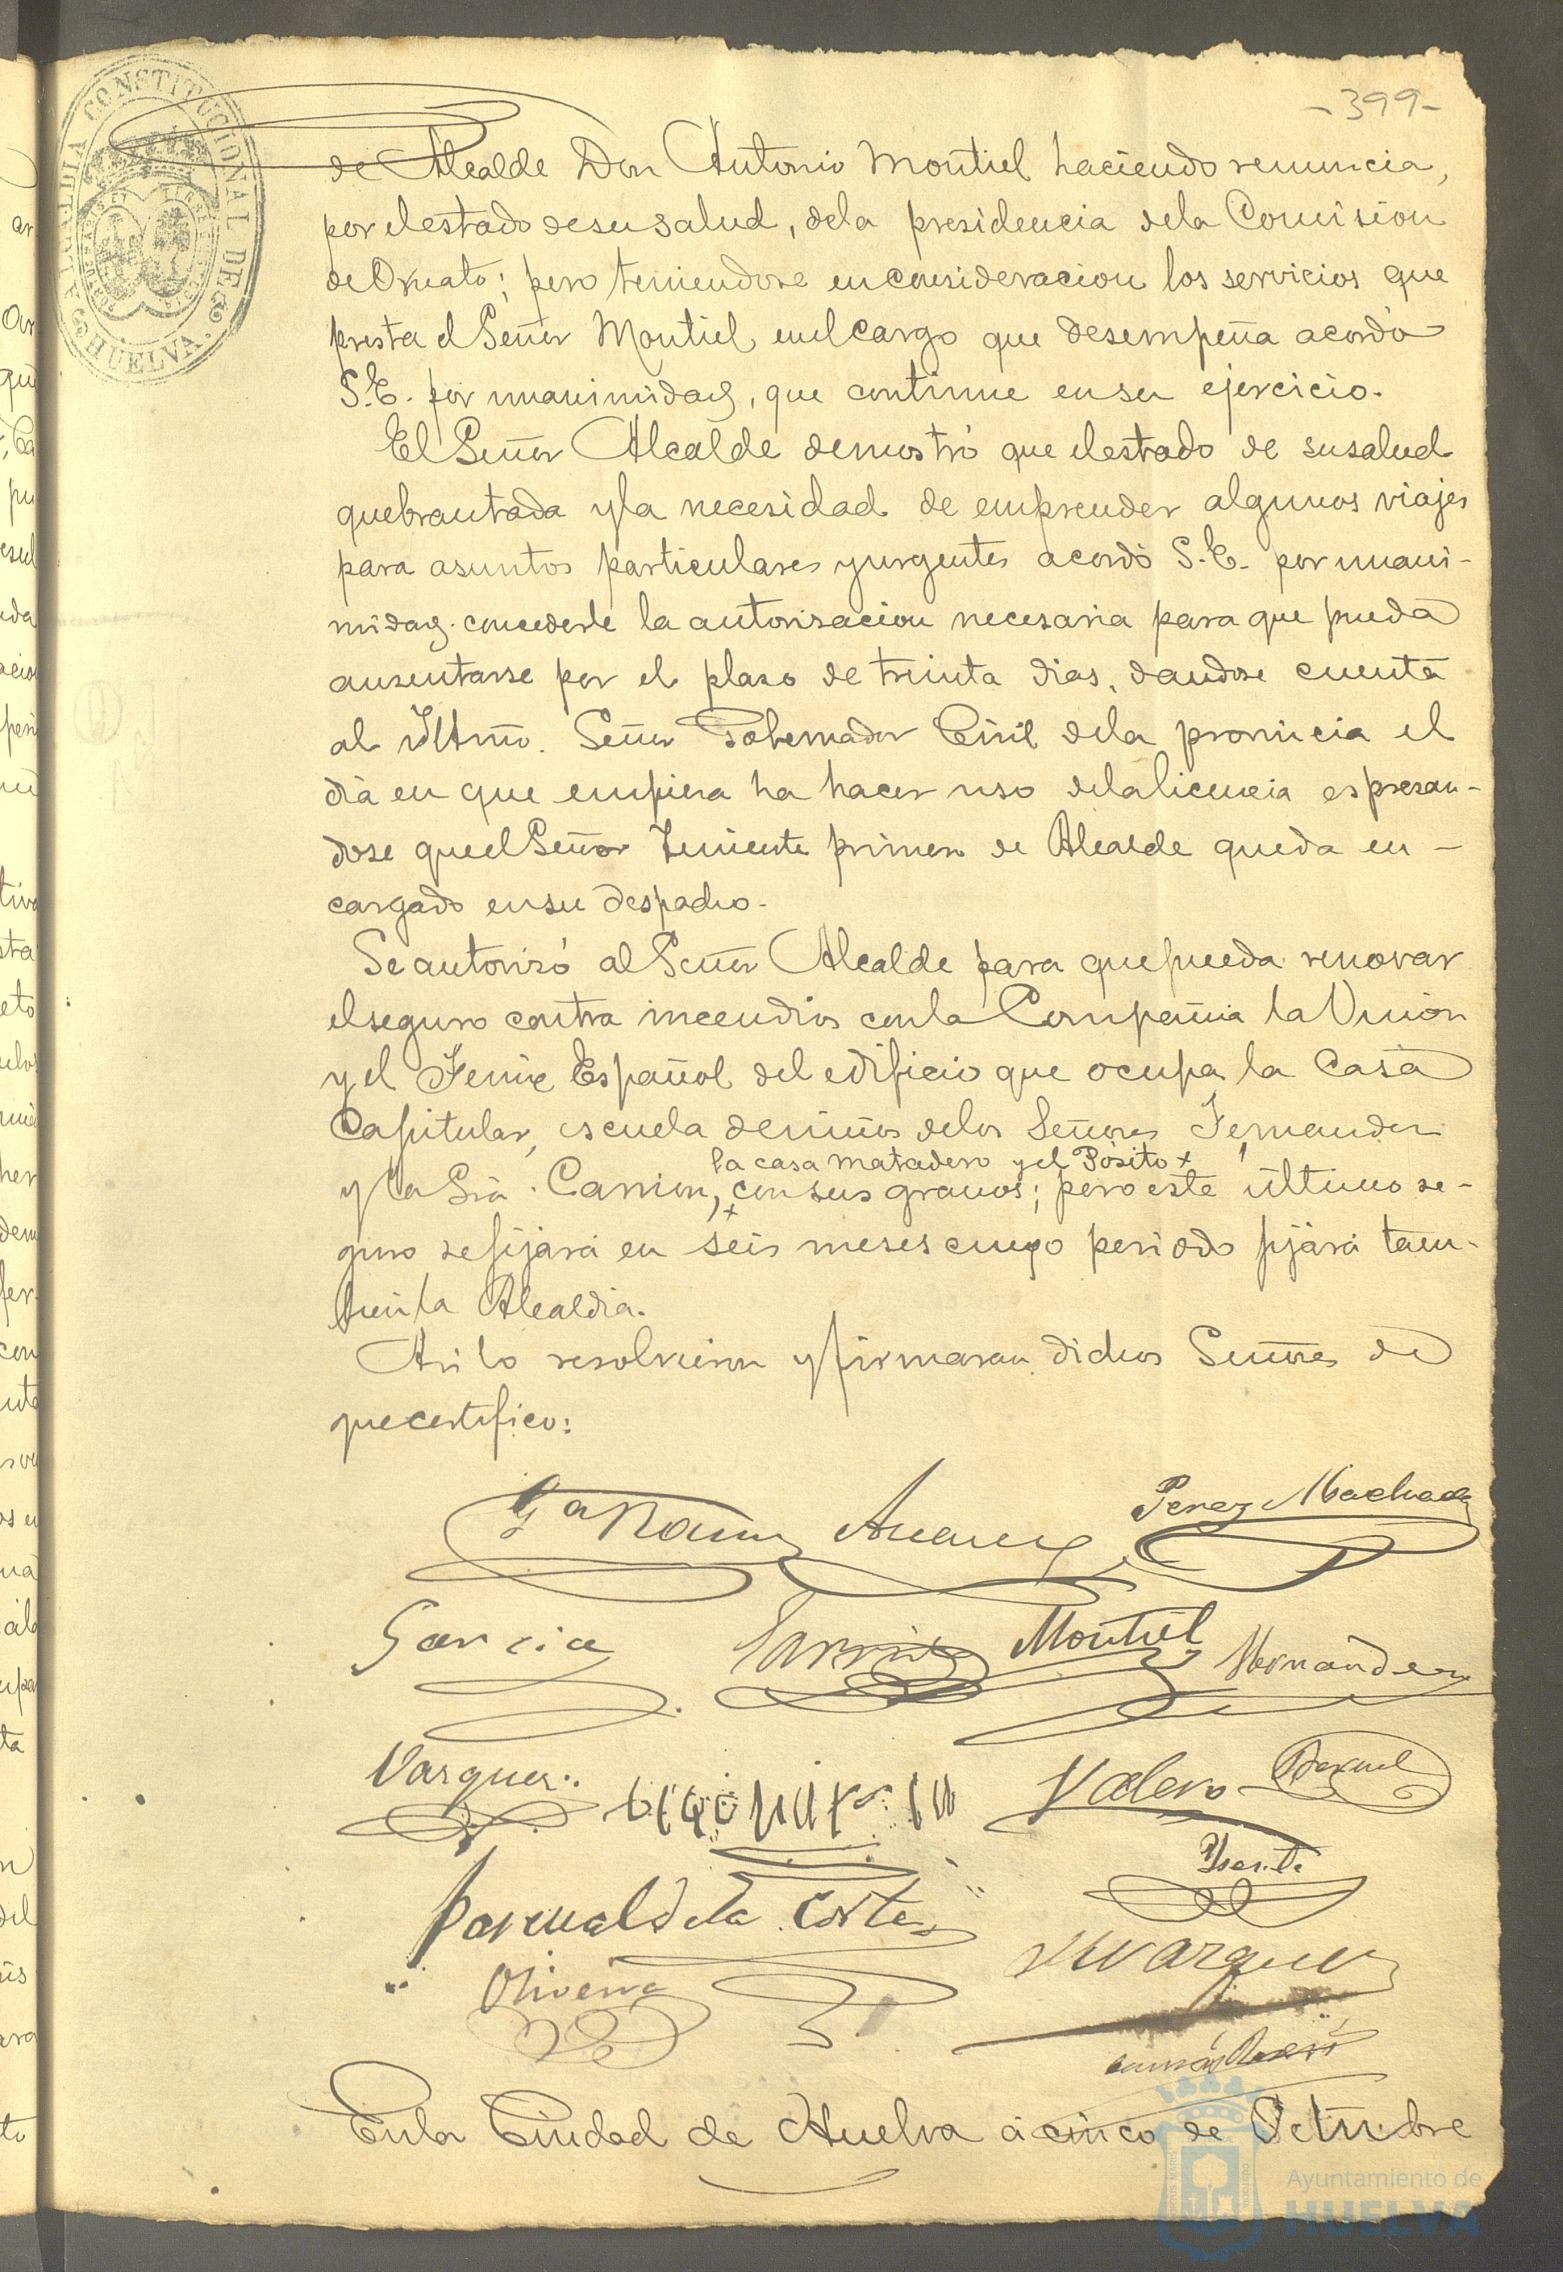 -399-
ALCALDIA CONSTITUCIONAL DE HUELVA.
de Alcalde Don Antonio Montiel haciendo renuncia,
por el estado de su salud, de la presidencia de la Comision
de Ornato; pero teniendose en consideracion los servicios que
presta el Señor Montiel en el cargo que desempeña acordó
S.E. por unanimidad, que continue en su ejercicio.
El Señor Alcalde demostró que el estado de su salud
quebrantada y la necesidad de emprender algunos viajes
para asuntos particulares y urgentes acordó S.E. por unani-
midad concederle la autorisacion necesaria para que pueda
ausentarse por el plaso de treinta dias, dandose cuenta
al Iltmo. Señor Gobernador Civil de la provincia el
dia en que empiesa ha hacer uso de la licencia espresan-
dose que el Señor Teniente primero de Alcalde queda en-
cargado en su despacho.
Se autorisó al Señor Alcalde para que pueda renovar
el seguro contra incendios con la Compañia la Union
y el Fenix Español del edificio que ocupa la Casa
Capitular, escuela de niños de los Señores Fernandez
la casa matadero y el Pósito x
y la Srâ. Carrion, x con sus granos; pero este último se-
guro se fijará en seis meses cuyo periodo fijará tam-
bien la Alcaldia.
Asi lo resolvieron y firmaran dichos Señores de
que certifico:
Gª Ramos Perez Machado
Garcia Montiel Hernández
Vazquez Valero
Pascual de la Corte
Oliveira Vazquez
En la Ciudad de Huelva á cinco de Octubre
Ayuntamiento de
HUELVA